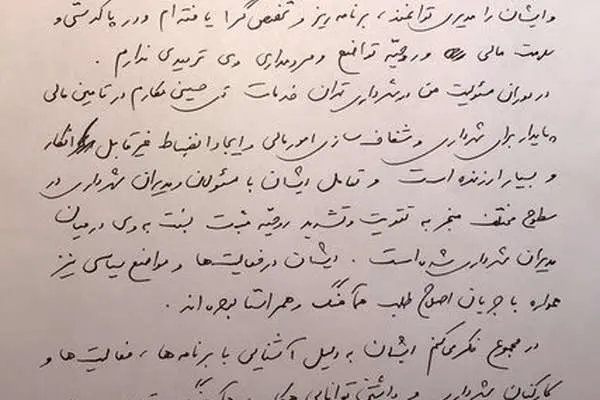 و ایشان را مدیری توانمند، برنامه ریز و تخصص گرا یافته ام و در پاکدستی و
سلامت مالی و روحیه تواضع و مردمداری وی تردیدی ندارم .
در دوران مسئولیت من در شهرداری تهران خدمات حسین مکارم در تامین مالی
پایدار برای شهرداری و شفاف سازی امور مالی و ایجاد انضباط غیر قابل انکار
و بسیار ارزنده است و تعامل ایشان با مسئولان و مدیران شهرداری در
سطوح مختلف منجر به تقویت و تشدید روحیه مثبت نسبت به وی در میان
مدیران شهرداری شده است . ایشان در فعالیت‌ها و مواضع سیاسی نیز
همواره با جریان اصلاح طلب هماهنگ و همراستا بوده اند .
در مجموع فکر می‌کنم ایشان به دلیل آشنایی با برنامه ها ، فعالیت‌ها و
کارکنان شهرداری و داشتن توانایی